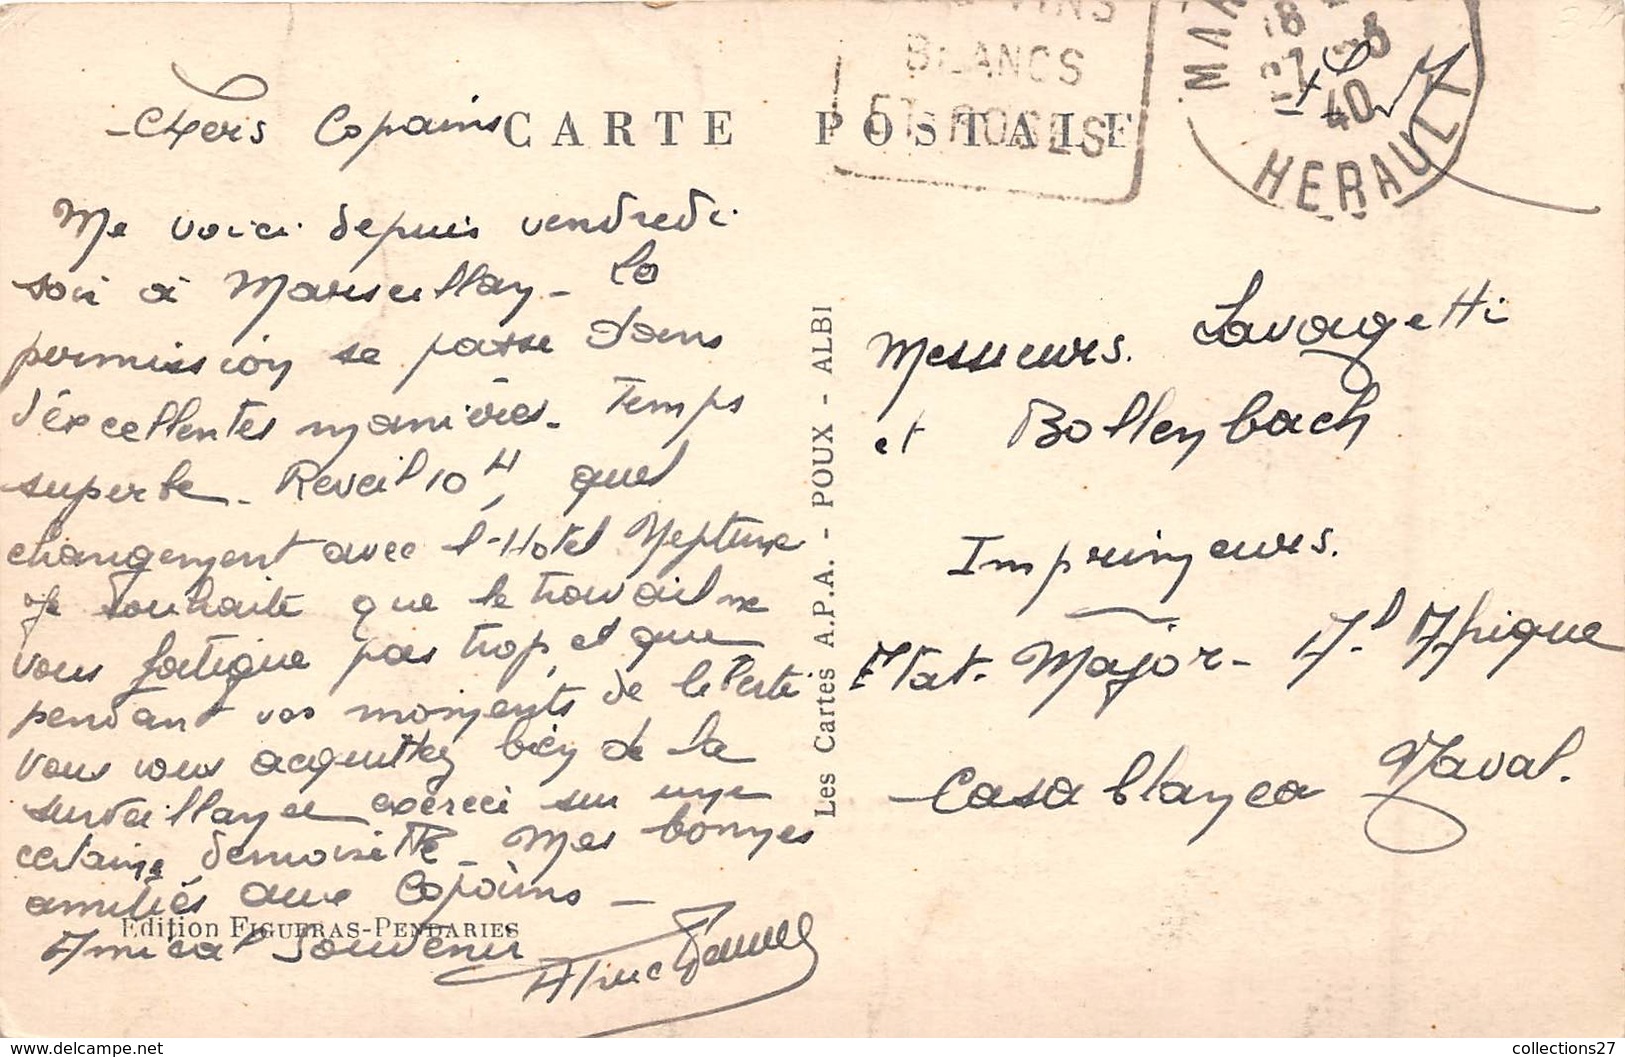 VINS
BLANCS
ET ROSES
MAR
18
27 -3
40
HERAULT
CARTE POSTALE
Chers Copains
Me voici depuis vendredi
soir à Marseillan - La
permission se passe dans
d'excellentes manières. Temps
superbe - Reveil 10 H, quel
changement avec l'Hotel Neptune
Je souhaite que le travail ne
vous fatigue pas trop, et que
pendant vos moments de liberté
vous vous acquittez bien de la
surveillance exercée sur une
certaine demoiselle - Mes bonnes
amitiés aux Copains -
Edition FIGUERAS-PENDARIES
Amical Souvenir
Les Cartes A.P.A. - POUX - ALBI
Messieurs. Lavougetti
et Bollenbach
Imprimeurs.
Etat-Major - Al Afrique
Casablanca Naval.
collections27